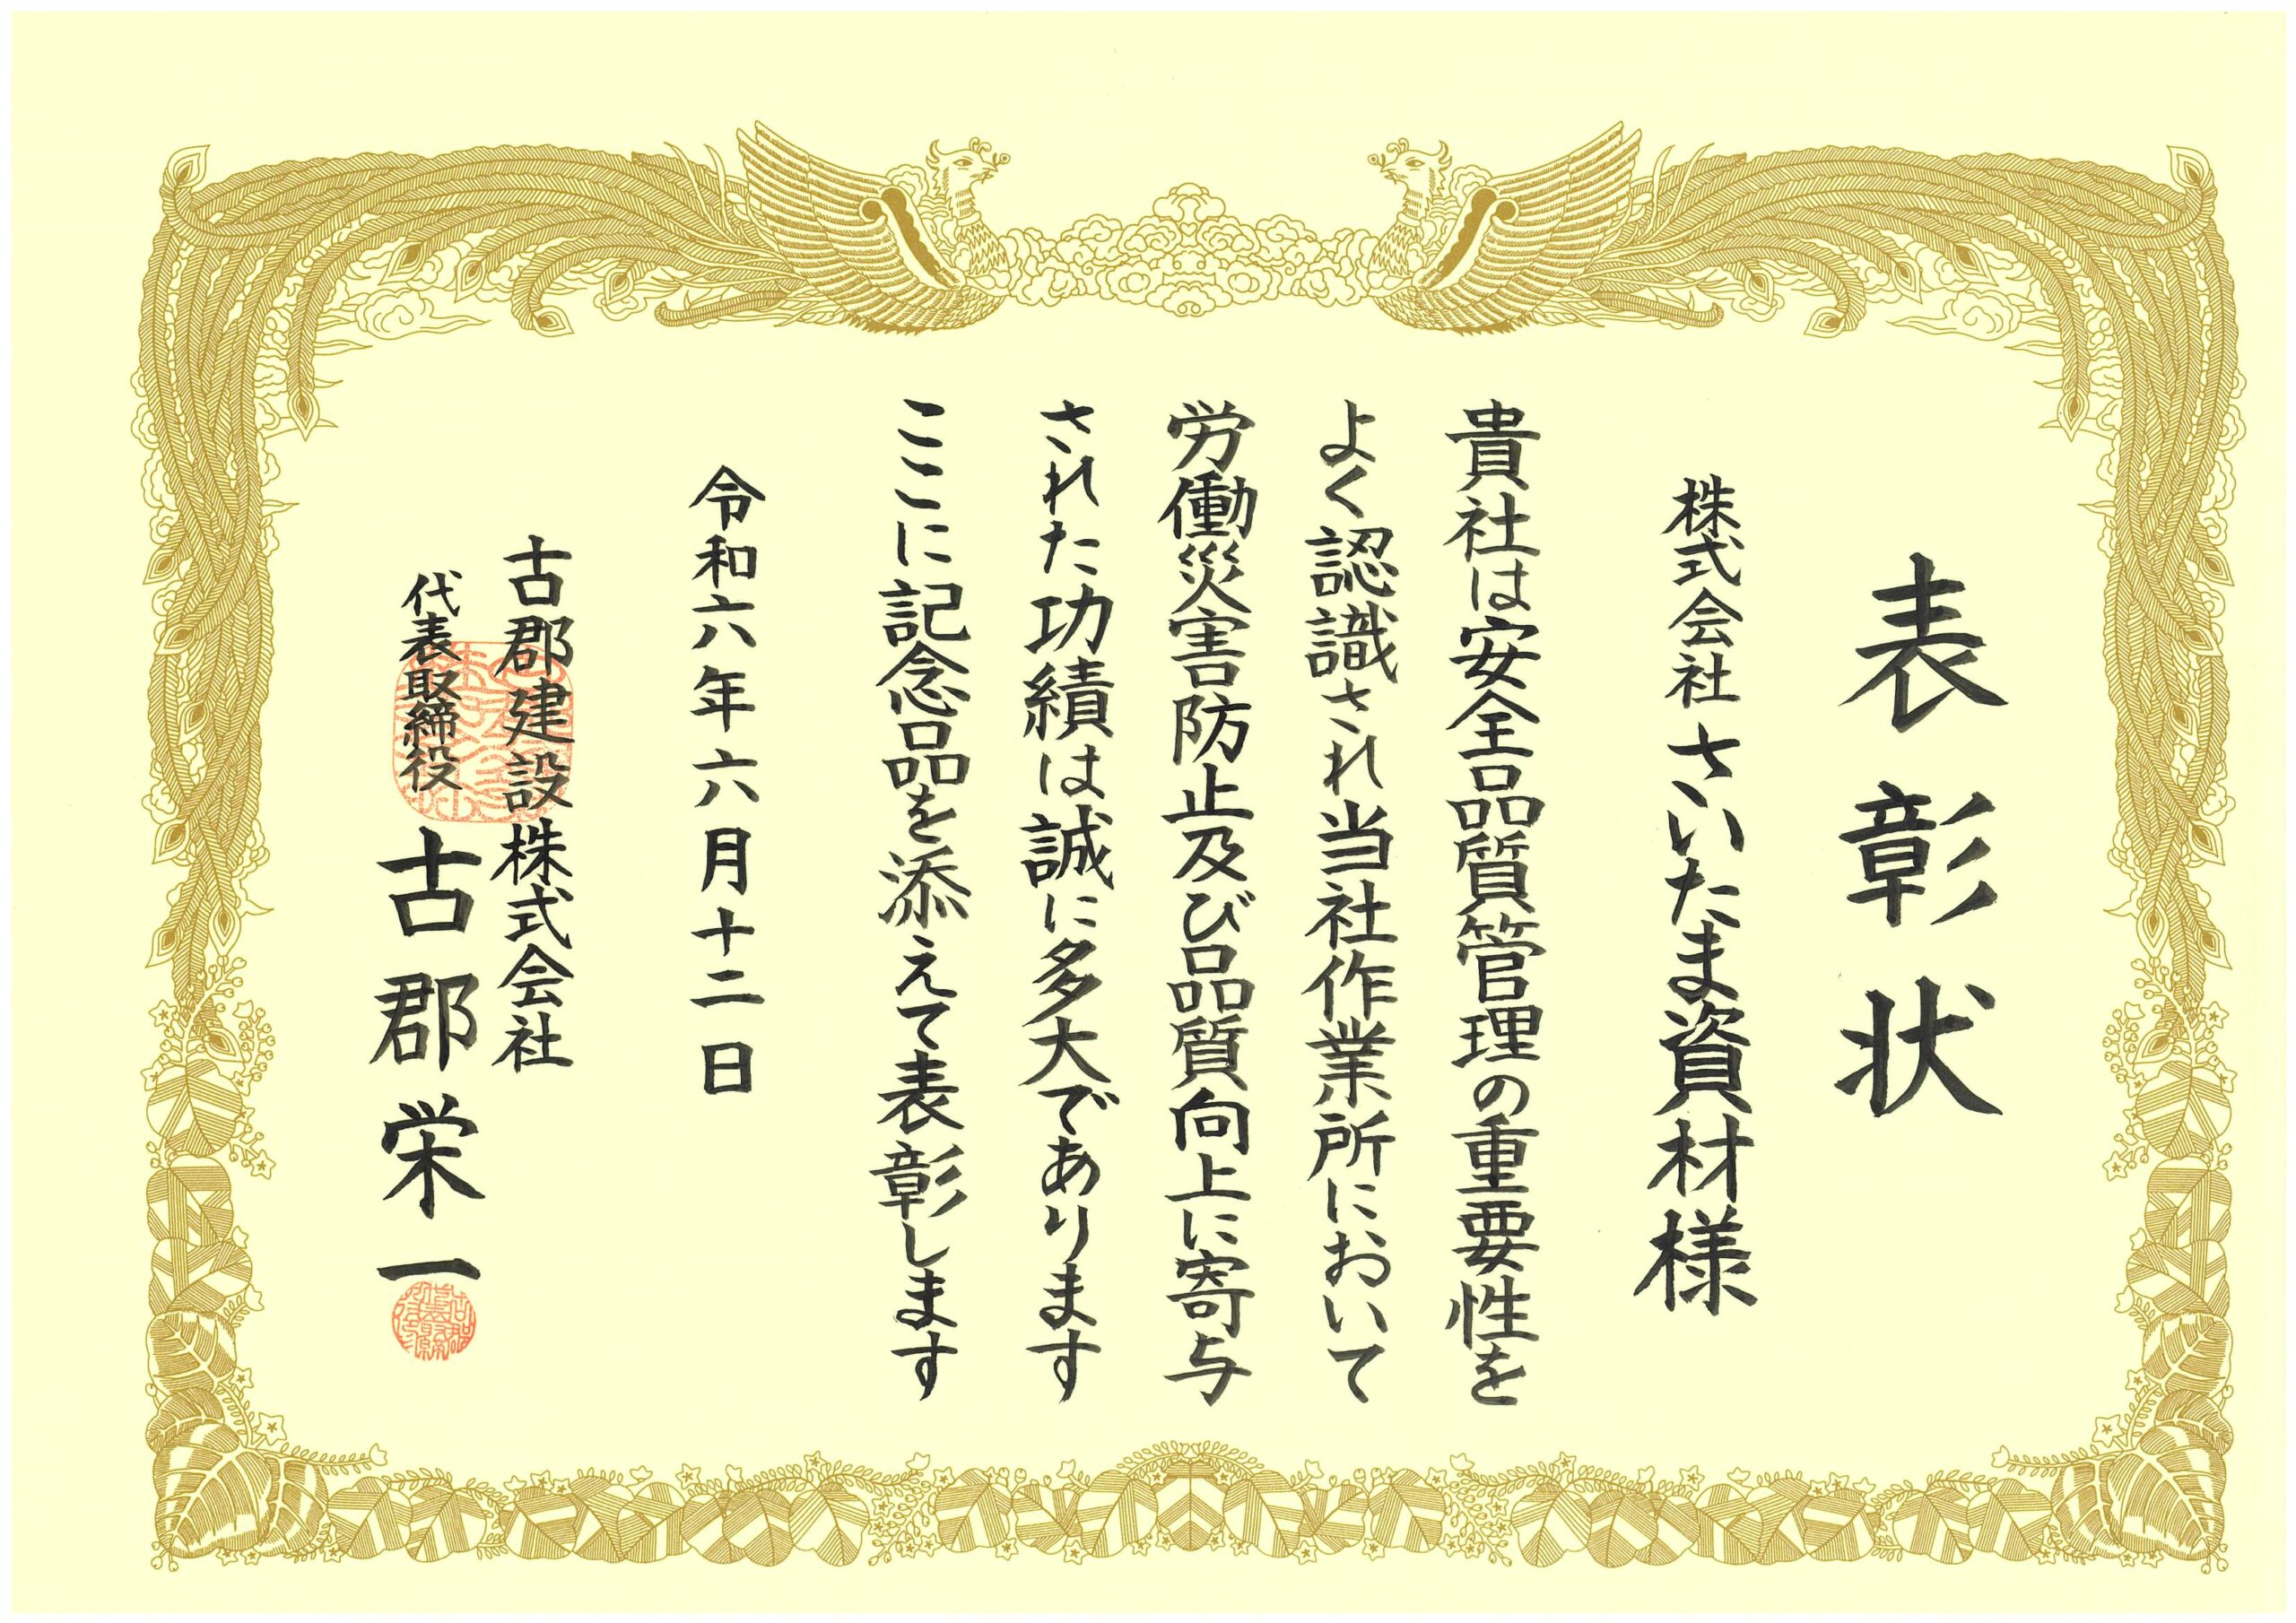 表彰状
株式会社さいたま資材様
貴社は安全品質管理の重要性を
よく認識され当社作業所において
労働災害防止及び品質向上に寄与
された功績は誠に多大であります
ここに記念品を添えて表彰します
令和六年六月十二日
古郡建設株式会社
代表取締役 古郡栄一